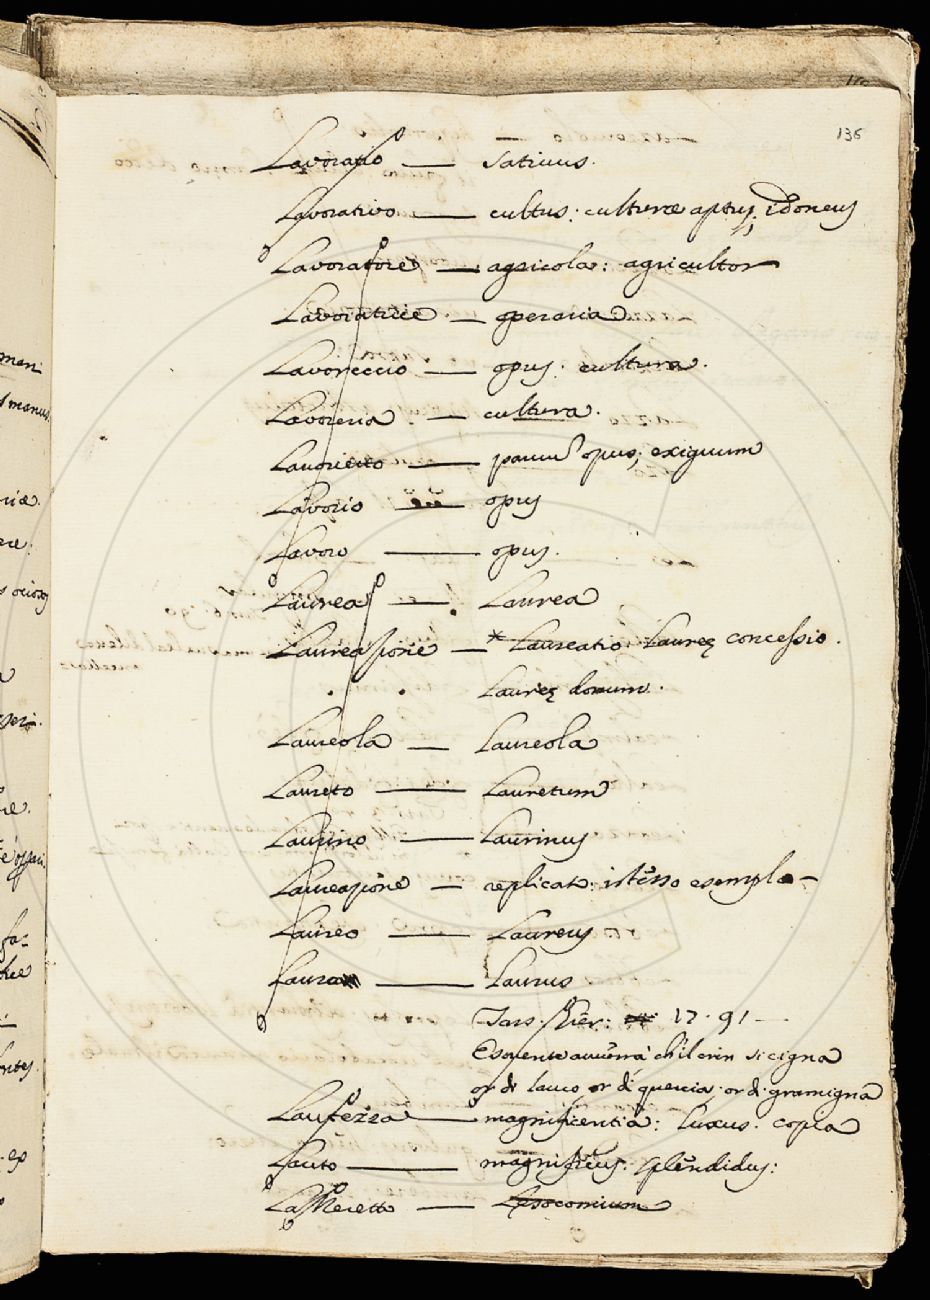 136
Lavorato — sativus.
Lavorativo — cultus: culturæ aptus, idoneus
Lavoratore — agricola: agricultor
Lavoratrice — operaria
Lavoreccio — opus. cultura.
Lavoreria — cultura.
Lavorietto — parvum opus, exiguum
Lavorio — opus
Lavoro — opus.
Laurea — Laurea
Laureazione — * Laureatio: Laureę concessio.
Laureę donum.
Laureola — Laureola
Laureto — Lauretum
Laurino — Laurinus
Laureazione — replicato: istesso esemplo—
Laureo — Laureus
Lauro — Laurus
Tass. Gier: 17. 91—
la crin si cigna
or di lauro, or di quercia, or di gramigna
Lautezza — magnificentia: luxus: copia
Lauto — magnificus: splendidus:
Lazzeretto —
man
manus